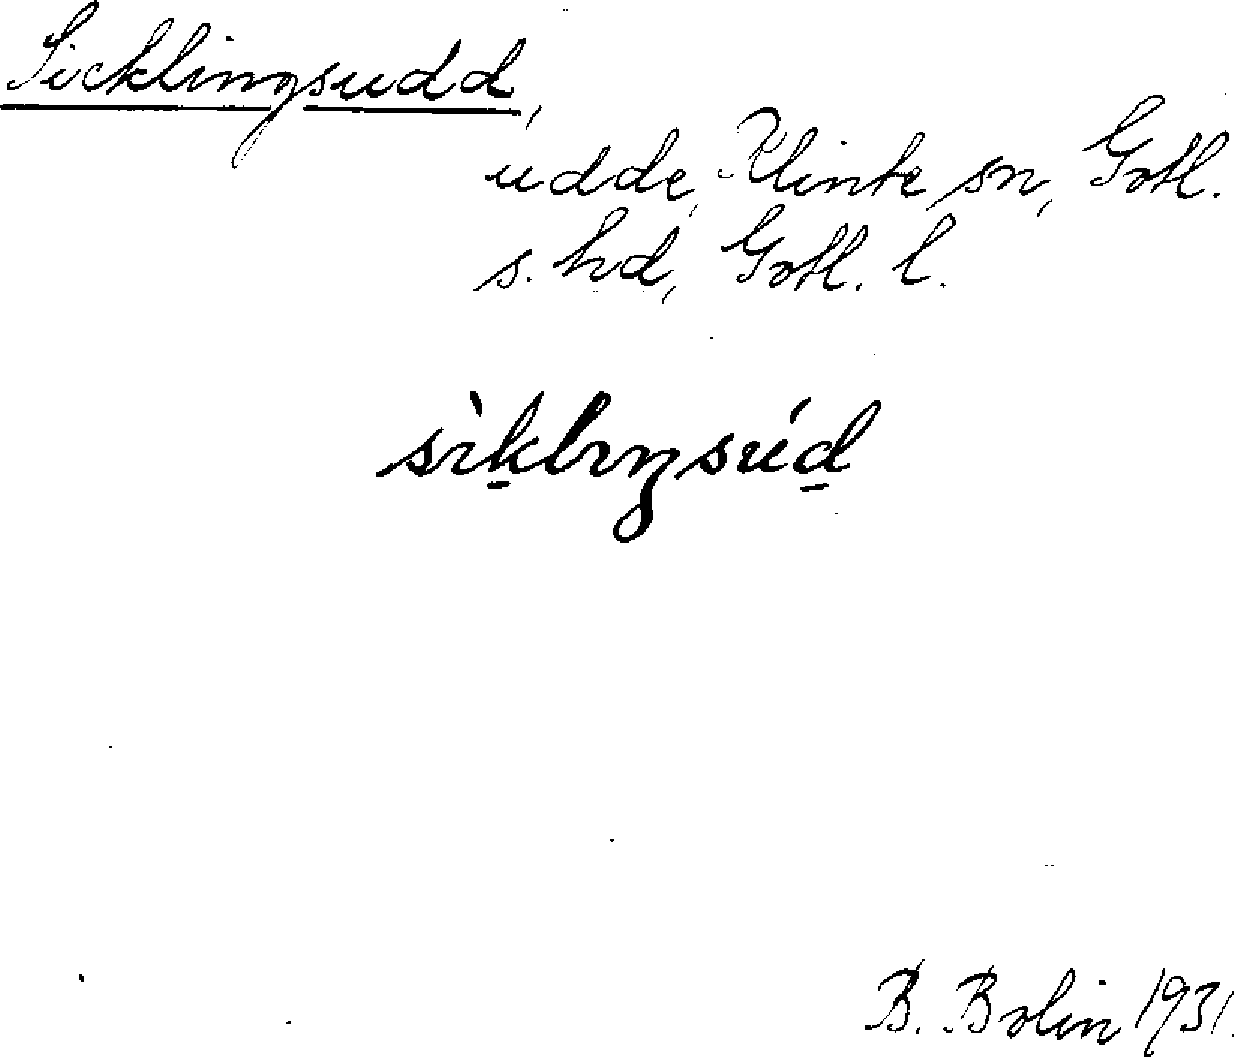 Sicklingsudd,
udde, Klinte sn, Gotl.
s. hd, Gotl. l.
sìk̠lıŋsúd̠
B. Bolin 1931.